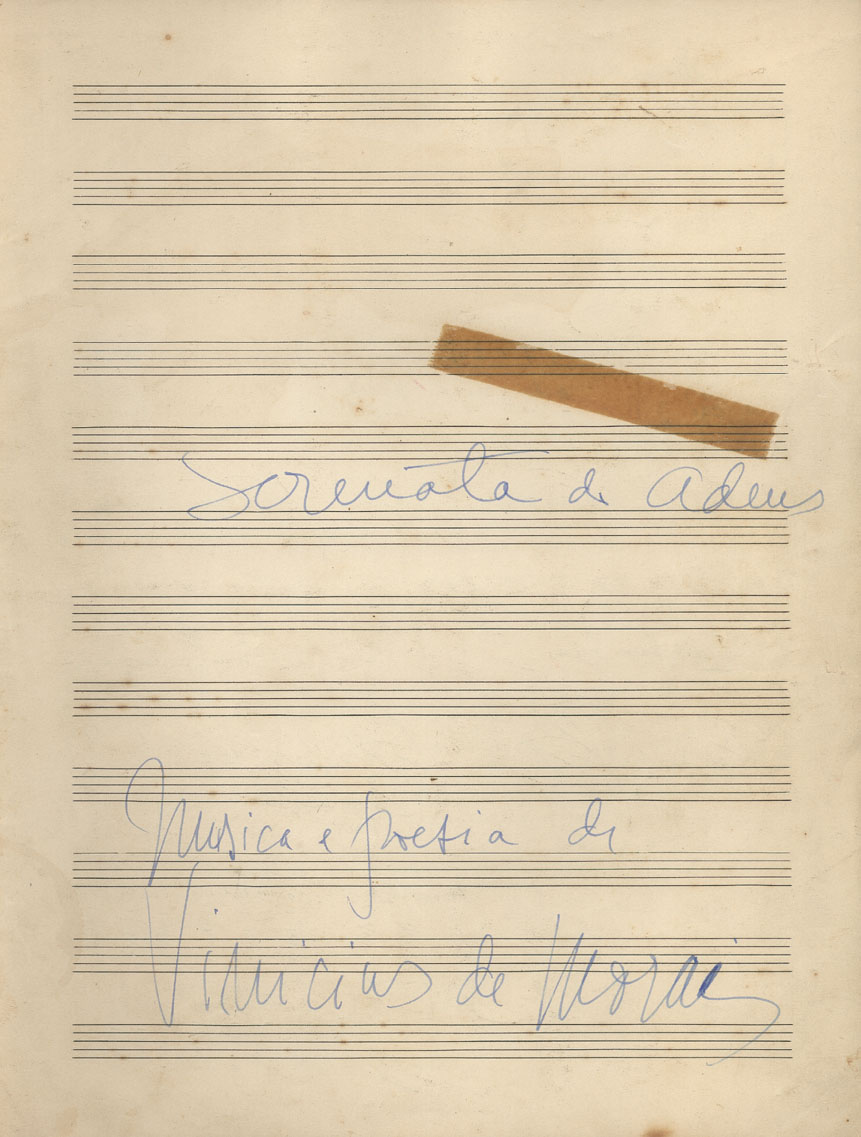 Serenata do Adeus
Musica e poesia de
Vinicius de Moraes